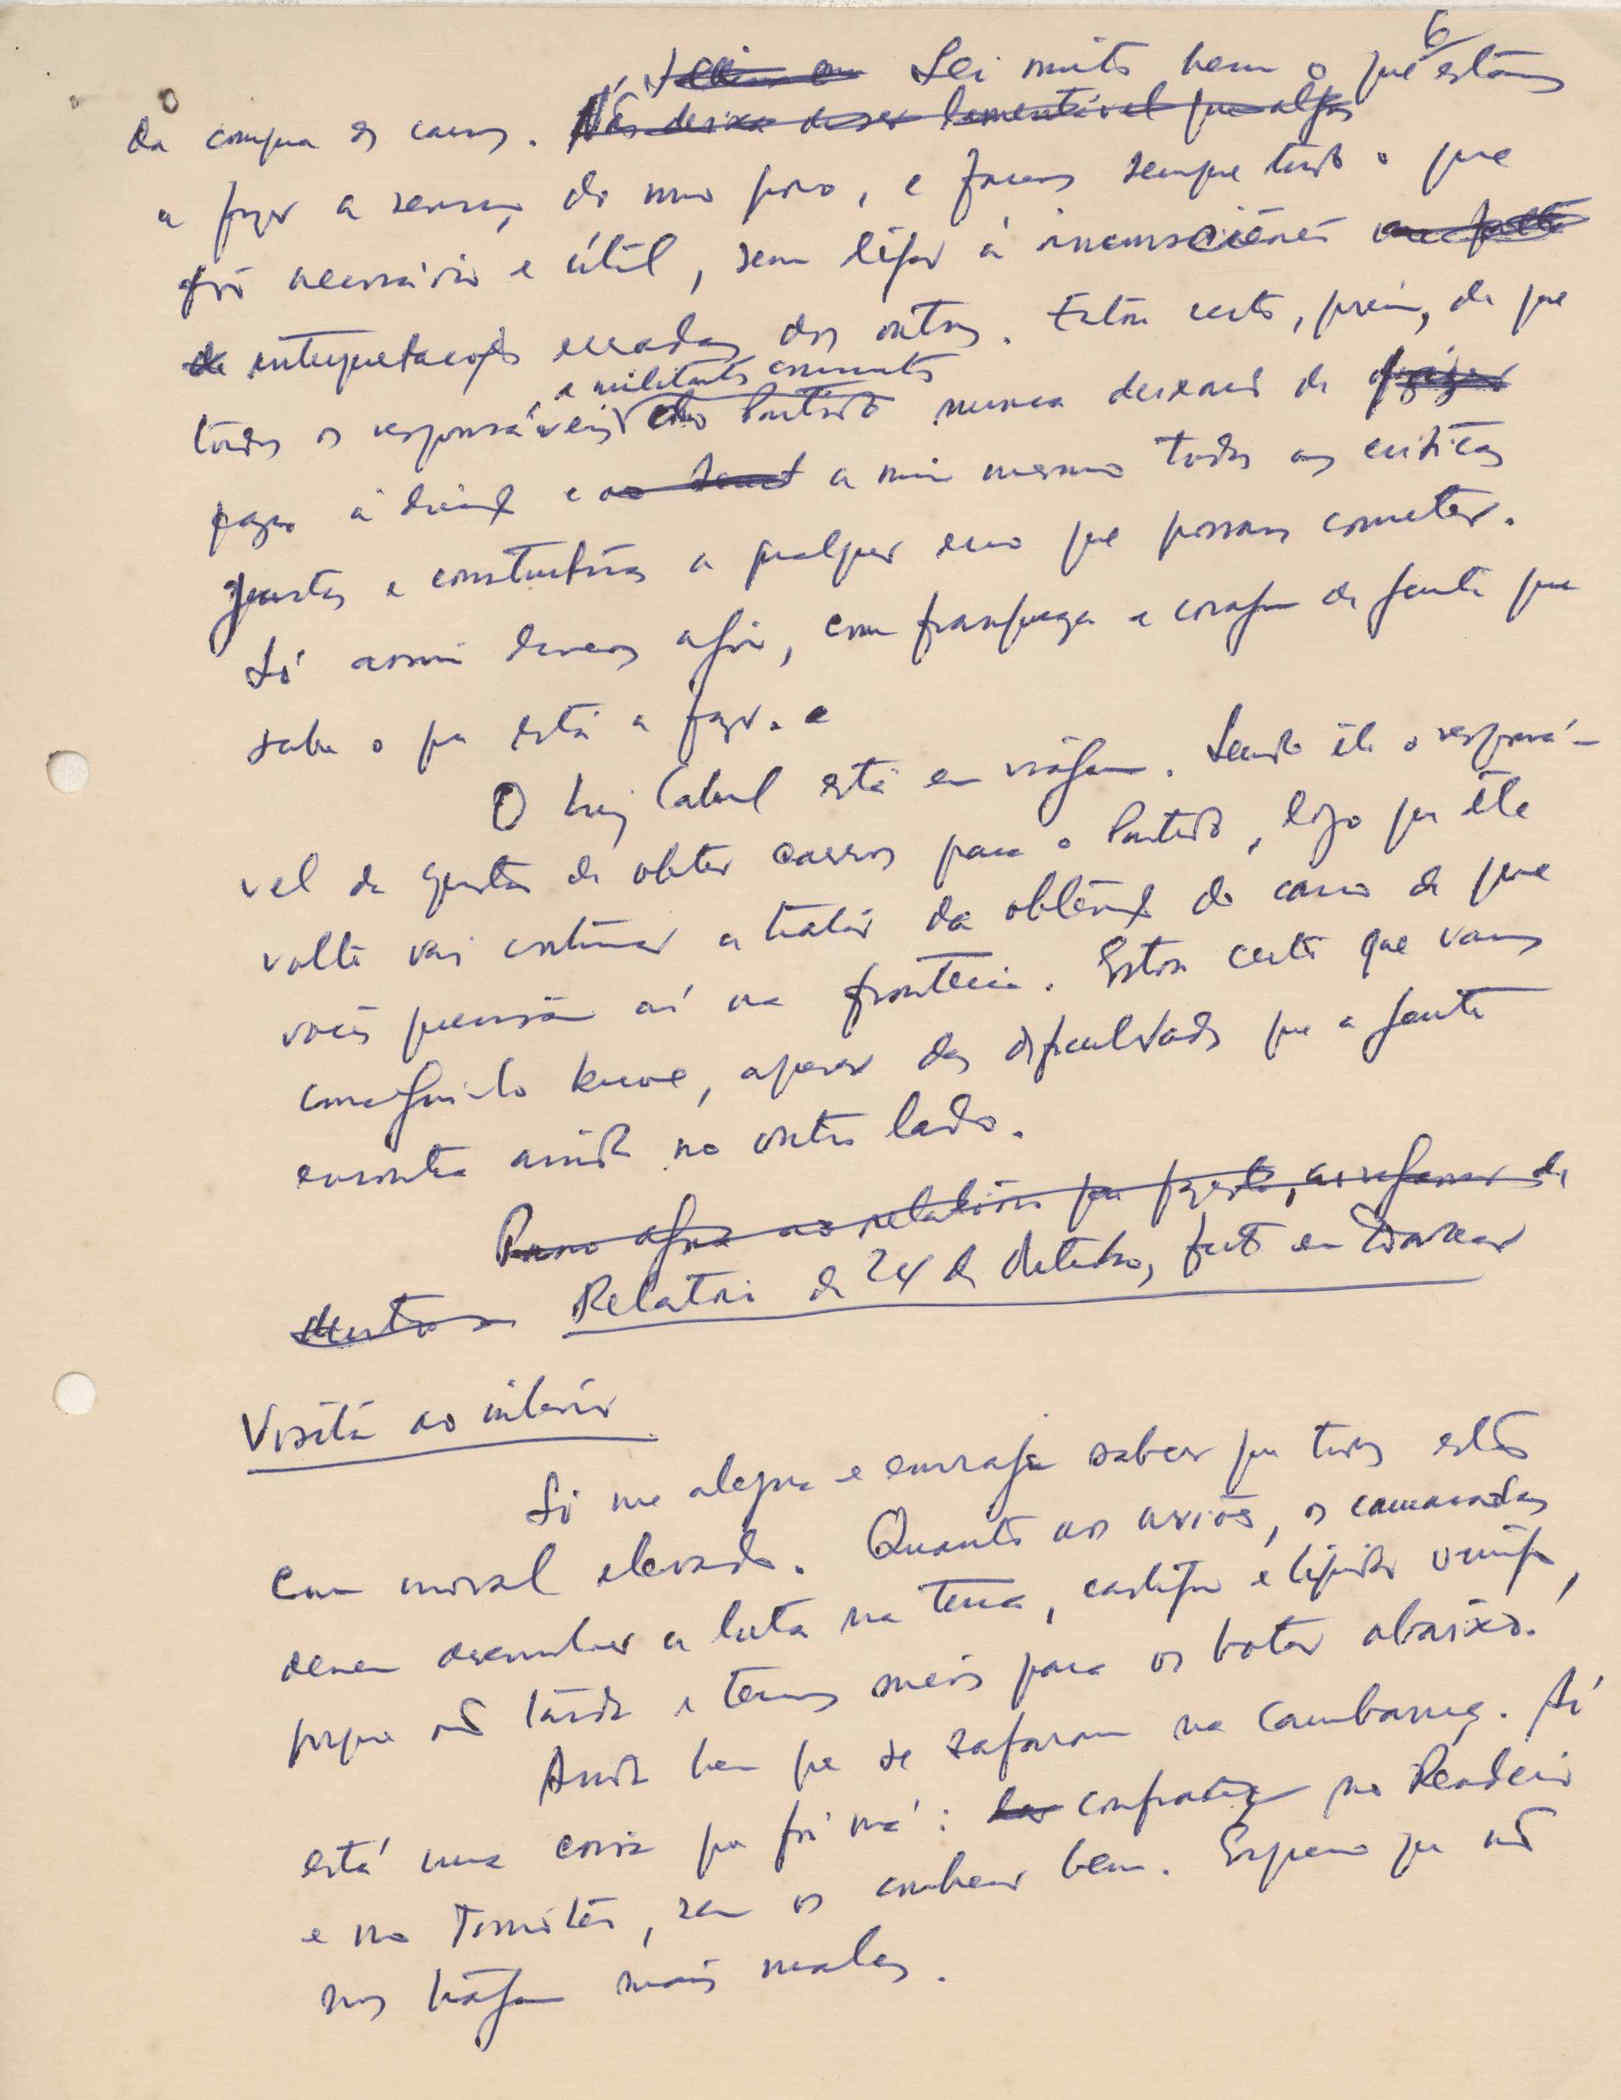 6
Sei muito bem o que estamos
da compra de carros. Não deixa de ser lamentável que alguns
a fazer a serviço do nosso povo, e faremos sempre tudo o que
fôr necessário e útil, sem ligar à inconsciência
de interpretações erradas dos outros. Estou certo, porém, de que
e militantes conscientes
todos os responsáveis do Partido nunca deixarão de
fazer à direcção e a mim mesmo todas as críticas
justas e construtivas a qualquer erro que possamos cometer.
Só assim devemos agir, com franqueza e coragem de gente que
sabe o que está a fazer.
O Luiz Cabral está em viagem. Sendo êle o responsá-
vel da questão de obter carros para o Partido, logo que êle
volte vai continuar a tratar da obtenção do carro de que
vocês precisam aí na fronteira. Estou certo que vamos
consegui-lo breve, apesar das dificuldades que a gente
encontra ainda no outro lado.
Passo agora ao relatório que fizeste, de
Relatório de 24 de Outubro, feito em Ziguinchor
Visita ao interior
Só me alegra e encoraja saber que todos estão
com moral elevado. Quanto aos aviões, os camaradas
devem desenvolver a luta na terra, castigar e liquidar o inimigo,
porque não tarda e temos meios para os botar abaixo!
Ainda bem que se safaram na Cambança. Aí
está uma coisa que foi má: confiança no Readeiro
e no Tomitas, sem os conhecer bem. Espero que não
nos tragam mais males.